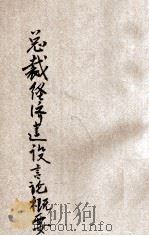 总裁经济建设言论概要